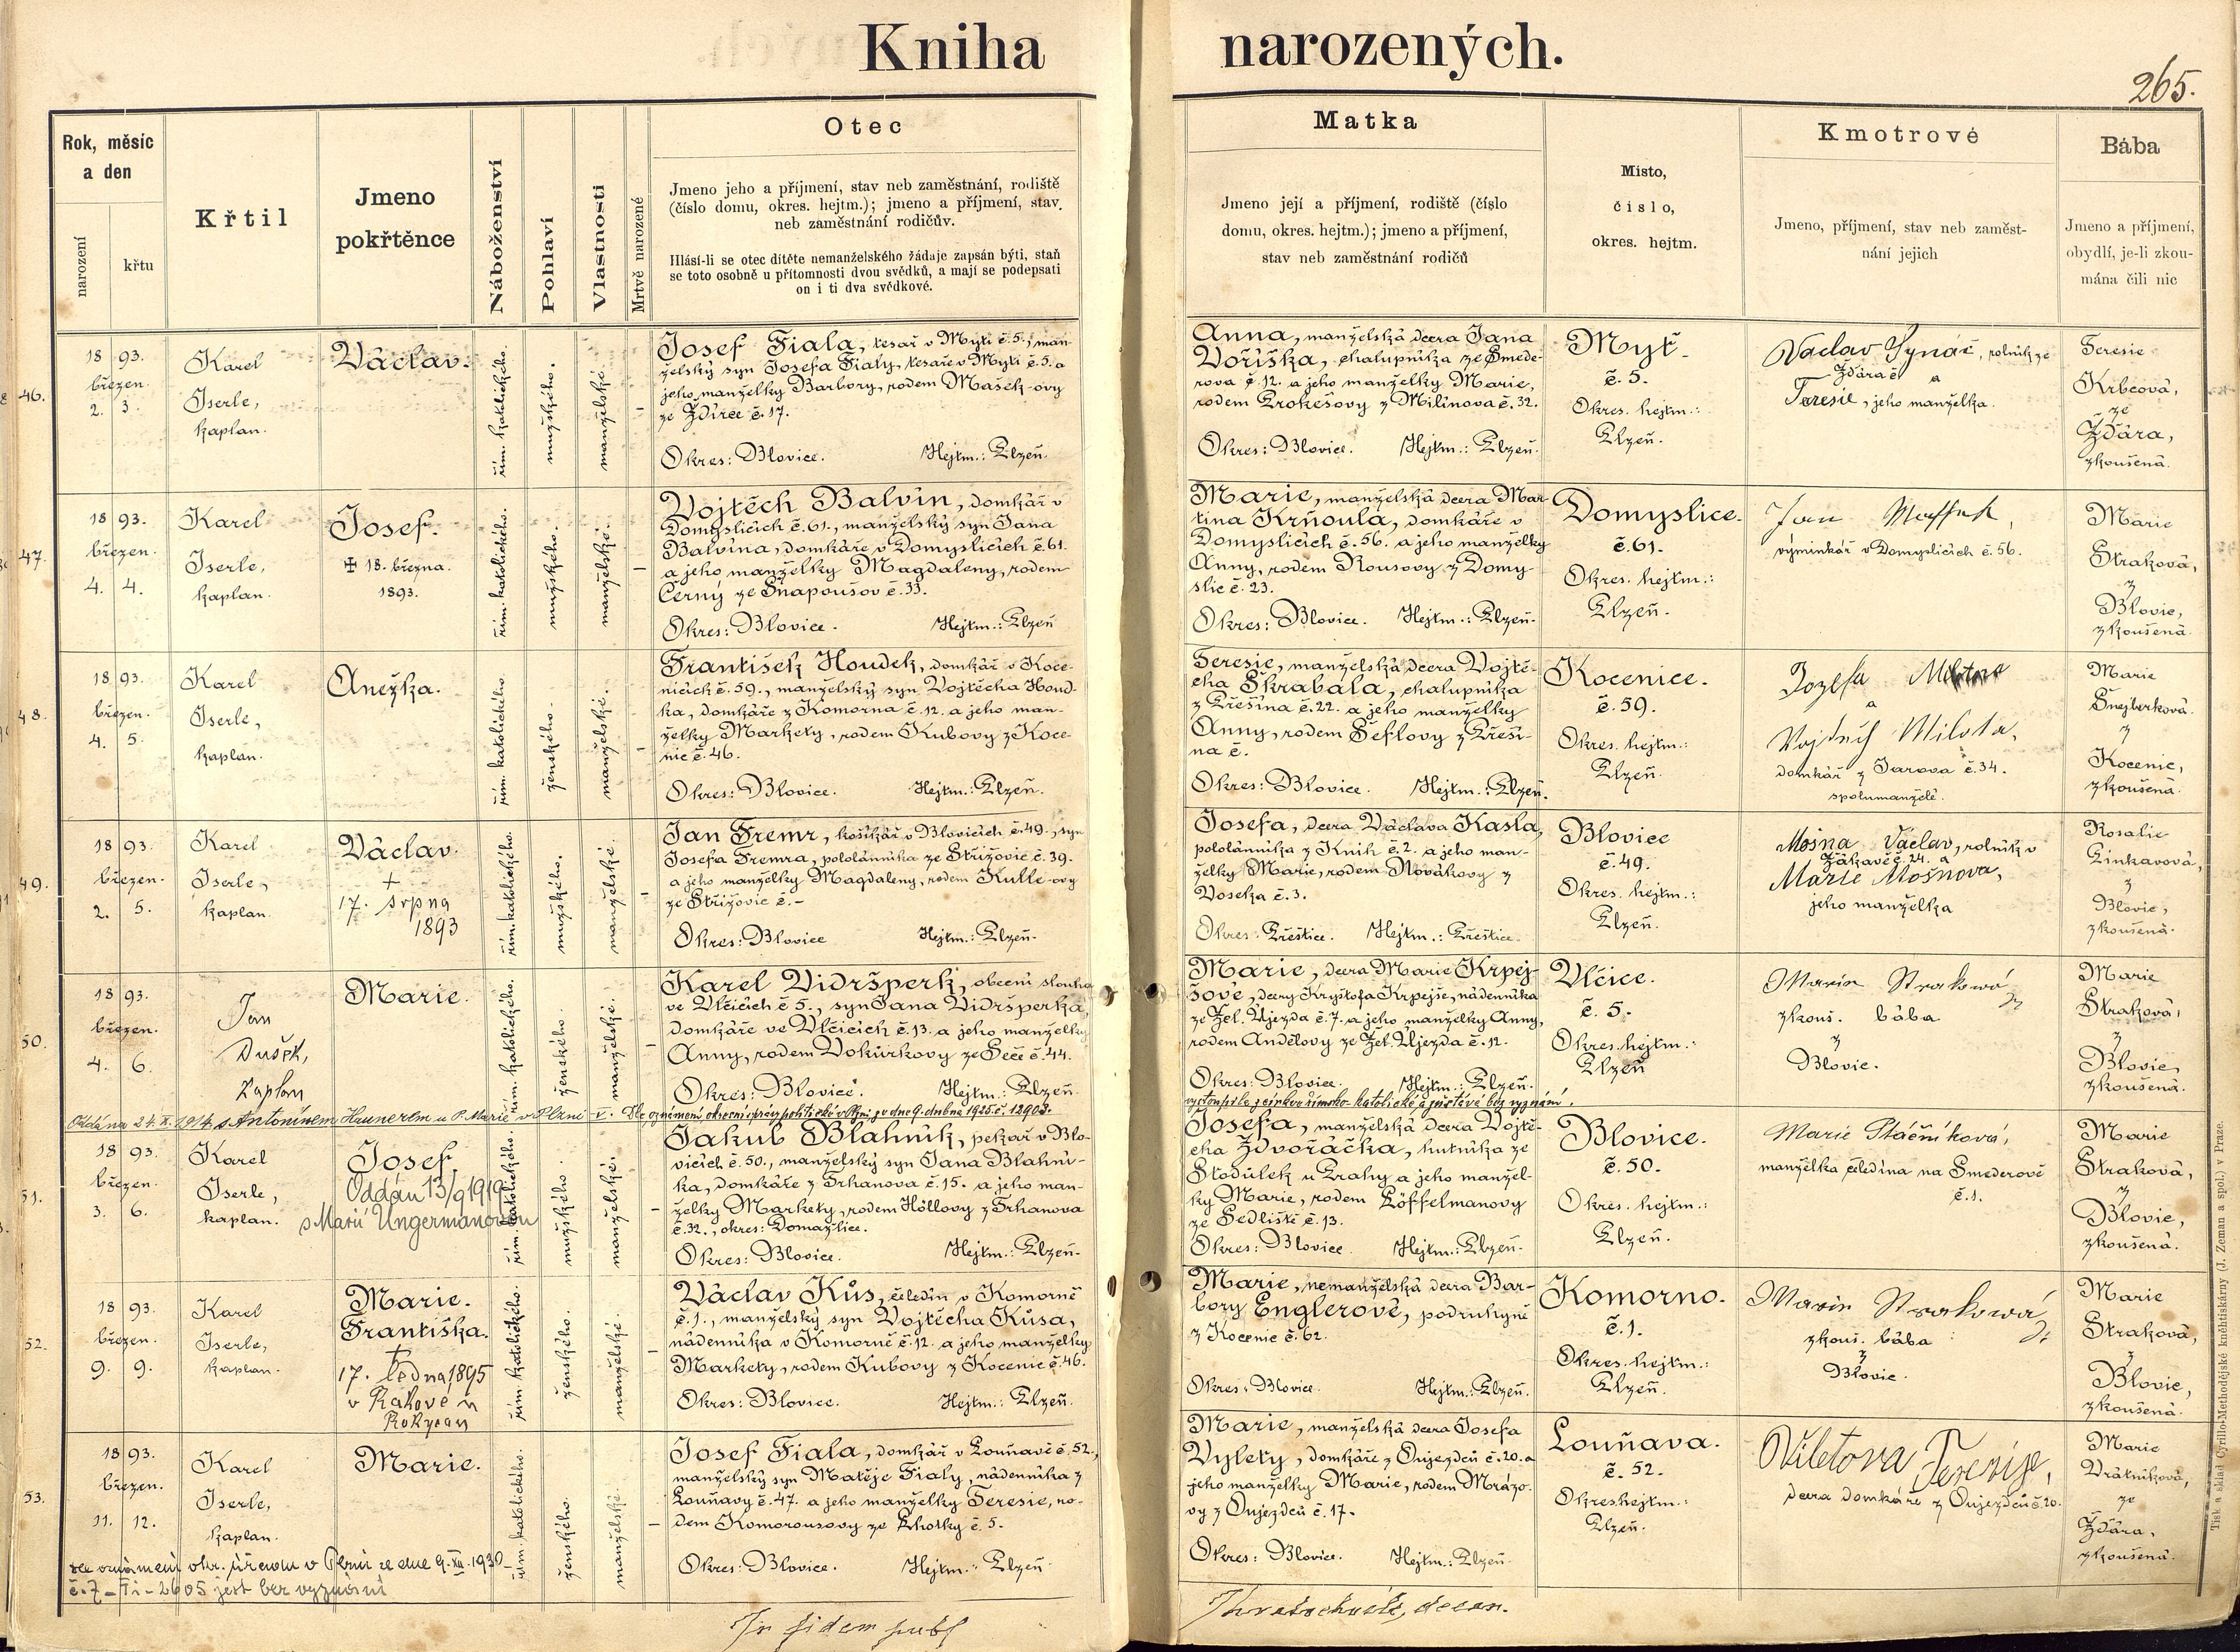 Kniha narozených.
265.
Rok, měsíc
a den
narození
křtu
Křtil
Jmeno
pokřtěnce
Náboženství
Pohlaví
Vlastnosti
Mrtvě narozené
Otec
Jmeno jeho a příjmení, stav neb zaměstnání, rodiště
(číslo domu, okres. hejtm.); jmeno a příjmení, stav
neb zaměstnání rodičův.
Hlásí-li se otec dítěte nemanželského žádaje zapsán býti, staň
se toto osobně u přítomnosti dvou svědků, a mají se podepsati
on i ti dva svědkové.
Matka
Jmeno její a příjmení, rodiště (číslo
domu, okres. hejtm.); jmeno a příjmení,
stav neb zaměstnání rodičů
Místo,
číslo,
okres. hejtm.
Kmotrové
Jmeno, příjmení, stav neb zaměst-
nání jejich
Bába
Jmeno a příjmení,
obydlí, je-li zkou-
mána čili nic
46.
18 93.
březen
2. 3.
Karel
Iserle,
kaplan.
Václav.
řím. katolického.
mužského.
manželské.
Josef Fiala, tesař v Mýti č. 5., man-
želský syn Josefa Fialy, tesaře v Mýti č. 5. a
jeho manželky Barbory, rodem Mašek-ovy
ze Ždírce č. 17.
Okres: Blovice. Hejtm.: Plzeň.
Anna, manželská dcera Jana
Voříška, chalupníka ze Smede-
rova č. 12. a jeho manželky Marie,
rodem Prokešovy z Milínova č. 32.
Okres: Blovice. Hejtm.: Plzeň.
Mýť.
č. 5.
Okres. hejtm.:
Plzeň.
Václav Synáč, rolník ze
Žďára č a
Teresie, jeho manželka.
Teresie
Krbcová,
ze
Žďára,
zkoušená.
47.
18 93.
březen.
4. 4.
Karel
Iserle,
kaplan.
Josef.
✠ 18. března.
1893.
řím. katolického.
mužského.
manželské.
Vojtěch Balvín, domkář v
Domyslicích č. 61., manželský syn Jana
Balvína, domkáře v Domyslicích č. 61.
a jeho manželky Magdaleny, rodem
Černý ze Šnapoušov č. 33.
Okres: Blovice. Hejtm.: Plzeň
Marie, manželská dcera Mar-
tina Krňoula, domkáře v
Domyslicích č. 56. a jeho manželky
Anny, rodem Rousovy z Domy-
slic č. 23.
Okres: Blovice. Hejtm.: Plzeň.
Domyslice.
č. 61.
Okres. hejtm.:
Plzeň.
Jan
výminkář v Domyslicích č. 56.
Marie
Straková,
z
Blovic,
zkoušená.
48.
18 93.
březen.
4. 5.
Karel
Iserle,
kaplan.
Anežka.
řím. katolického.
ženského.
manželské.
František Houdek, domkář v Koce-
nicích č. 59., manželský syn Vojtěcha Houd-
ka, domkáře z Komorna č. 12. a jeho man-
želky Markety, rodem Kubovy z Koce-
nic č. 46.
Okres: Blovice. Hejtm.: Plzeň.
Teresie, manželská dcera Vojtě-
cha Škrabala, chalupníka
z Přešína č. 22. a jeho manželky
Anny, rodem Šeflovy z Přeší-
na č.
Okres: Blovice. Hejtm.: Plzeň.
Kocenice.
č. 59.
Okres. hejtm.:
Plzeň.
Jozefa
a
Vojtěch Milota,
domkář z Jarova č. 34.
spolumanželé.
Marie
Šnejberková.
z
Kocenic,
zkoušená.
49.
18 93.
březen.
2. 5.
Karel
Iserle,
kaplan.
Václav.
+
17. srpna
1893
řím. katolického.
mužského.
manželské.
Jan Tremr, košíkář v Blovicích č. 49., syn
Josefa Tremra, pololánníka ze Střížovic č. 39.
a jeho manželky Magdaleny, rodem Kulle-ovy
ze Střížovic č. -
Okres: Blovice Hejtm.: Plzeň.
Josefa, dcera Václava Kasla,
pololánníka z Knih č. 2. a jeho man-
želky Marie, rodem Novákovy z
Voseka č. 3.
Okres. Přeštice. Hejtm.: Přeštice.
Blovice
č. 49.
Okres. hejtm.:
Plzeň.
Mošna Václav, rolník v
Žákavě č. 24. a
Marie Mošnova,
jeho manželka
Rosalie
Pinkavová,
z
Blovic,
zkoušená.
50.
18 93.
březen.
4. 6.
Jan
Dušek,
kaplan
Marie.
řím. katolického.
ženského.
manželské.
Karel Vidršperk, obecní sluha
ve Vlčicích č 5., syn Jana Vidršperka,
domkáře ve Vlčicích č. 13. a jeho manželky
Anny, rodem Vokurkovy ze Seče č. 44.
Okres: Blovice. Hejtm.: Plzeň.
Marie, dcera Marie Krpej-
šové, dcery Kryštofa Krpejše, nádenníka
ze Žel. Újezda č. 7. a jeho manželky Anny,
rodem Andělovy ze Žel. Újezda č. 12.
Okres: Blovice. Hejtm.: Plzeň.
Vlčice.
č. 5.
Okres. hejtm.:
Plzeň
Marie Straková
zkouš. bába
z
Blovic.
Marie
Straková,
z
Blovic,
zkoušená.
Oddána 24. X. 1914 s Antonínem Hunerem u P. Marie v Plzni. Dle oznámení okresní správy politické v Plzni ze dne 9. dubna 1925 č. 12903.
vystoupila z církve římsko-katolické a zůstává bez vyznání.
51.
18 93.
březen.
3. 6.
Karel
Iserle,
kaplan.
Josef.
Oddán 13/9 1919
s Marií Ungermanovou
řím. katolického.
mužského.
manželské.
Jakub Blahník, pekař v Blo-
vicích č. 50., manželský syn Jana Blahní-
ka, domkáře z Trhanova č. 15. a jeho man-
želky Markety, rodem Höllovy z Trhanova
č. 32., okres: Domažlice.
Okres: Blovice. Hejtm.: Plzeň.
Josefa, manželská dcera Vojtě-
cha Zdvořáčka, hutníka ze
Stodůlek u Prahy a jeho manžel-
ky Marie, rodem Löffelmanovy
ze Sedliště č. 13.
Okres: Blovice. Hejtm.: Plzeň.
Blovice.
č. 50.
Okres. hejtm.:
Plzeň.
Marie Ptáčníková,
manželka čeledína na Smederově
č. 1.
Marie
Straková,
z
Blovic,
zkoušená.
52.
18 93.
březen.
9. 9.
Karel
Iserle,
kaplan.
Marie.
Františka.
+
17. ledna 1895
v Rakové u
Rokycan
řím. katolického.
ženského.
manželské.
Václav Kůs, čeledín v Komorně
č. 1., manželský syn Vojtěcha Kůsa,
nádenníka v Komorně č. 12. a jeho manželky
Markety, rodem Kubovy z Kocenic č. 46.
Okres: Blovice. Hejtm.: Plzeň.
Marie, nemanželská dcera Bar-
bory Englerové, podruhyně
z Kocenic č. 62.
Okres: Blovice. Hejtm.: Plzeň.
Komorno.
č. 1.
Okres. hejtm.:
Plzeň.
Marie Straková
zkouš. bába
z
Blovic.
Marie
Straková,
z
Blovic,
zkoušená.
53.
18 93.
březen.
11. 12.
Karel
Iserle,
kaplan.
Marie.
řím. katolického.
ženského.
manželské.
Josef Fiala, domkář v Louňavě č. 52.,
manželský syn Matěje Fialy, nádenníka z
Louňavy č. 47. a jeho manželky Teresie, ro-
dem Komorousovy ze Lhotky č. 5.
Okres: Blovice. Hejtm.: Plzeň
Marie, manželská dcera Josefa
Vylety, domkáře z Oujezdců č. 20. a
jeho manželky Marie, rodem Mrázo-
vy z Oujezdců č. 17.
Okres: Blovice. Hejtm.: Plzeň.
Louňava.
č. 52.
Okres hejtm.:
Plzeň.
Viletova Terezije,
dcera domkáře z Oujezdců č. 20.
Marie
Vrátníková,
ze
Žďára,
zkoušená.
dle oznámení okr. úřadu v Plzni ze dne 9. XII. 1930
č. 7 - Ti - 2605 jest bez vyznání
In fidem publ
decan.
Tisk a sklad Cyrillo-Methodějské knihtiskárny (J. Zeman a spol.) v Praze.